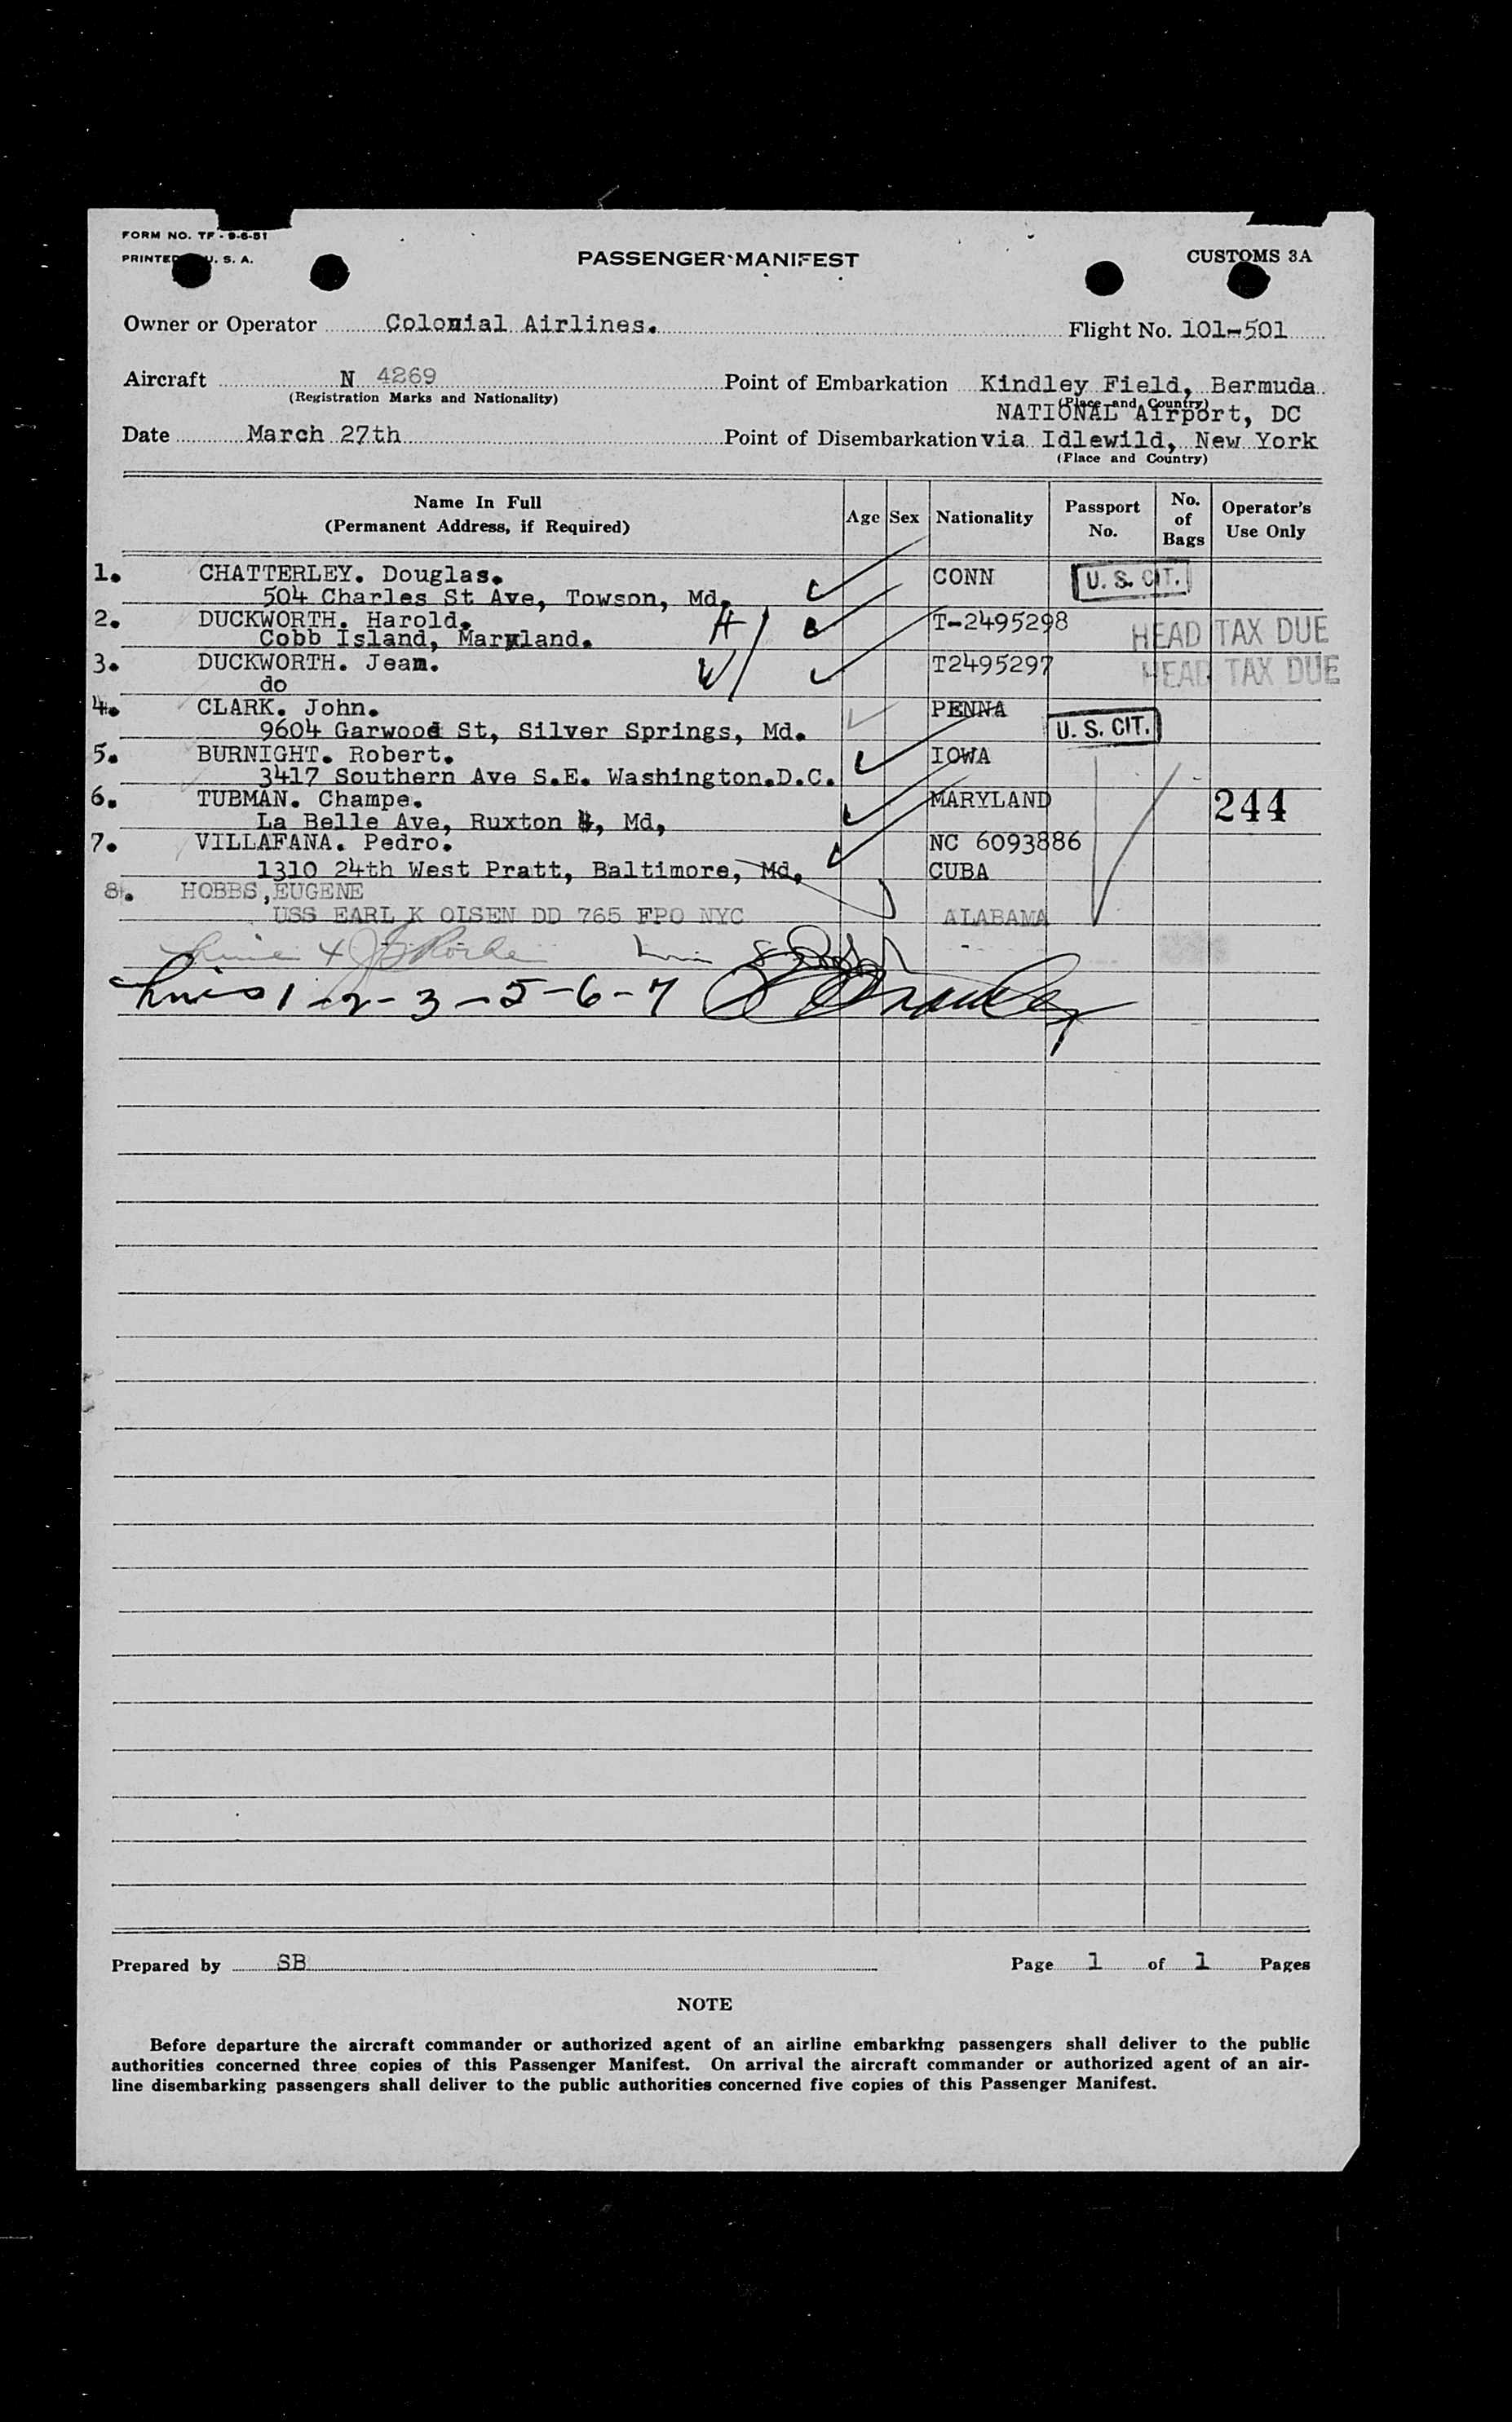 FORM NO. TF - 9-6-51
PRINTED U. S. A.
PASSENGER MANIFEST
CUSTOMS 3A
Owner or Operator Colonial Airlines.
Flight No. 101-501
Aircraft N 4269
(Registration Marks and Nationality)
Point of Embarkation Kindley Field, Bermuda
(Place and Country)
NATIONAL Airport, DC
Date March 27th
Point of Disembarkation via Idlewild, New York
(Place and Country)
Name In Full
(Permanent Address, if Required)
Age
Sex
Nationality
Passport
No.
No.
of
Bags
Operator's
Use Only
1. CHATTERLEY. Douglas. CONN U. S. CIT.
504 Charles St Ave, Towson, Md.
2. DUCKWORTH. Harold. H T-2495298 HEAD TAX DUE
Cobb Island, Maryland.
3. DUCKWORTH. Jean. W T2495297 HEAD TAX DUE
do
4. CLARK. John. PENNA
9604 Garwood St, Silver Springs, Md. U. S. CIT.
5. BURNIGHT. Robert. IOWA
3417 Southern Ave S.E. Washington.D.C.
6. TUBMAN. Champe. MARYLAND 244
La Belle Ave, Ruxton 4, Md,
7. VILLAFANA. Pedro. NC 6093886
1310 24th West Pratt, Baltimore, Md, CUBA
8. HOBBS,EUGENE
USS EARL K OLSEN DD 765 FPO NYC ALABAMA
Line 4
Lines 1-2-3-5-6-7
Prepared by SB
Page 1 of 1 Pages
NOTE
Before departure the aircraft commander or authorized agent of an airline embarking passengers shall deliver to the public
authorities concerned three copies of this Passenger Manifest. On arrival the aircraft commander or authorized agent of an air-
line disembarking passengers shall deliver to the public authorities concerned five copies of this Passenger Manifest.